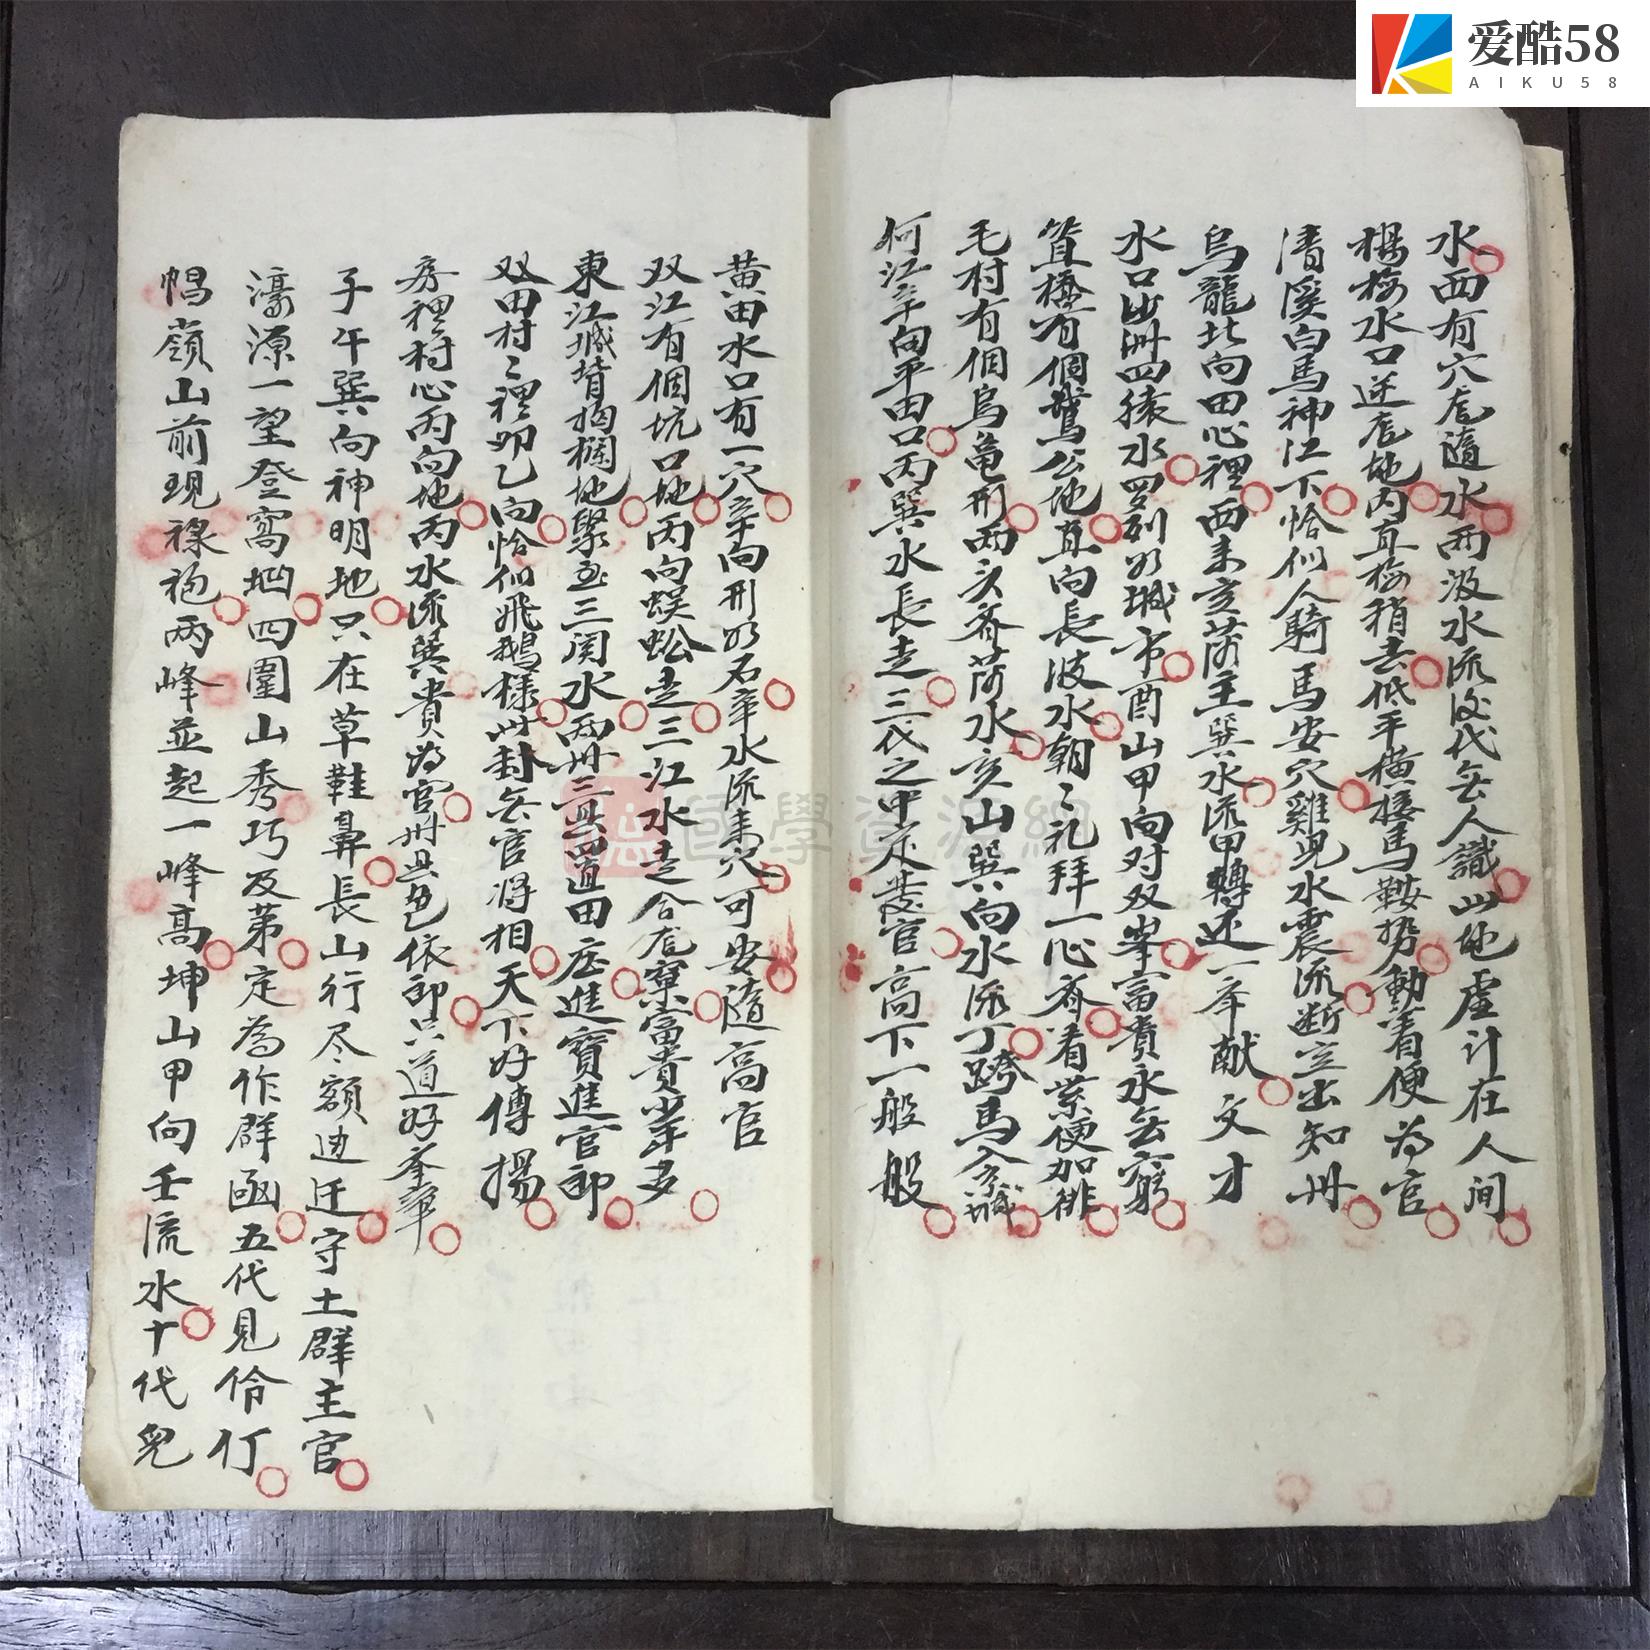 爱酷58
AIKU58
水西有穴龙隨水两汲水流後代无人識此地虚计在人间
楊梅水口逆龙地内直梅稍去低平横接馬鞍势動着便为官
清溪白馬神江下恰似人騎馬安穴雞兒水震流断定出知州
烏龍北向田心裡西来亥落主巽水流甲轉还一举献文才
水口出洲四猿水罗列如城市酉山甲向对双峯富貴永无窮
直橋有個鵞公地直向長波水朝〻礼拜一心齐着紫便加緋
毛村有個烏亀形两头齐落水亥山巽向水流丁跨馬入京城
何江辛向平田口丙巽水長走三代之中定其官高下一般般
黄田水口有一穴辛向形如石章水流来穴可安隨高官
双江有個坑口地丙向蜈蚣走三江水走合龙寮富貴少年多
東江城背掬欄地聚並三関水两州三县置田庄進寶進官郎
双田村〻裡卯乙向恰似飛鵝樣此封无官将相天下好傳揚
房裡村心丙向地丙水流巽貴为官州县色依郎只道好奎章
子午巽向神明地只在草鞋鼻長山行尽額迪迁守土群主官
濠源一望登窩地四圍山秀巧及第定為作群函五代見伶仃
幞嶺山前現祿袍两峰並起一峰高坤山甲向壬流水十代児
國學資源網